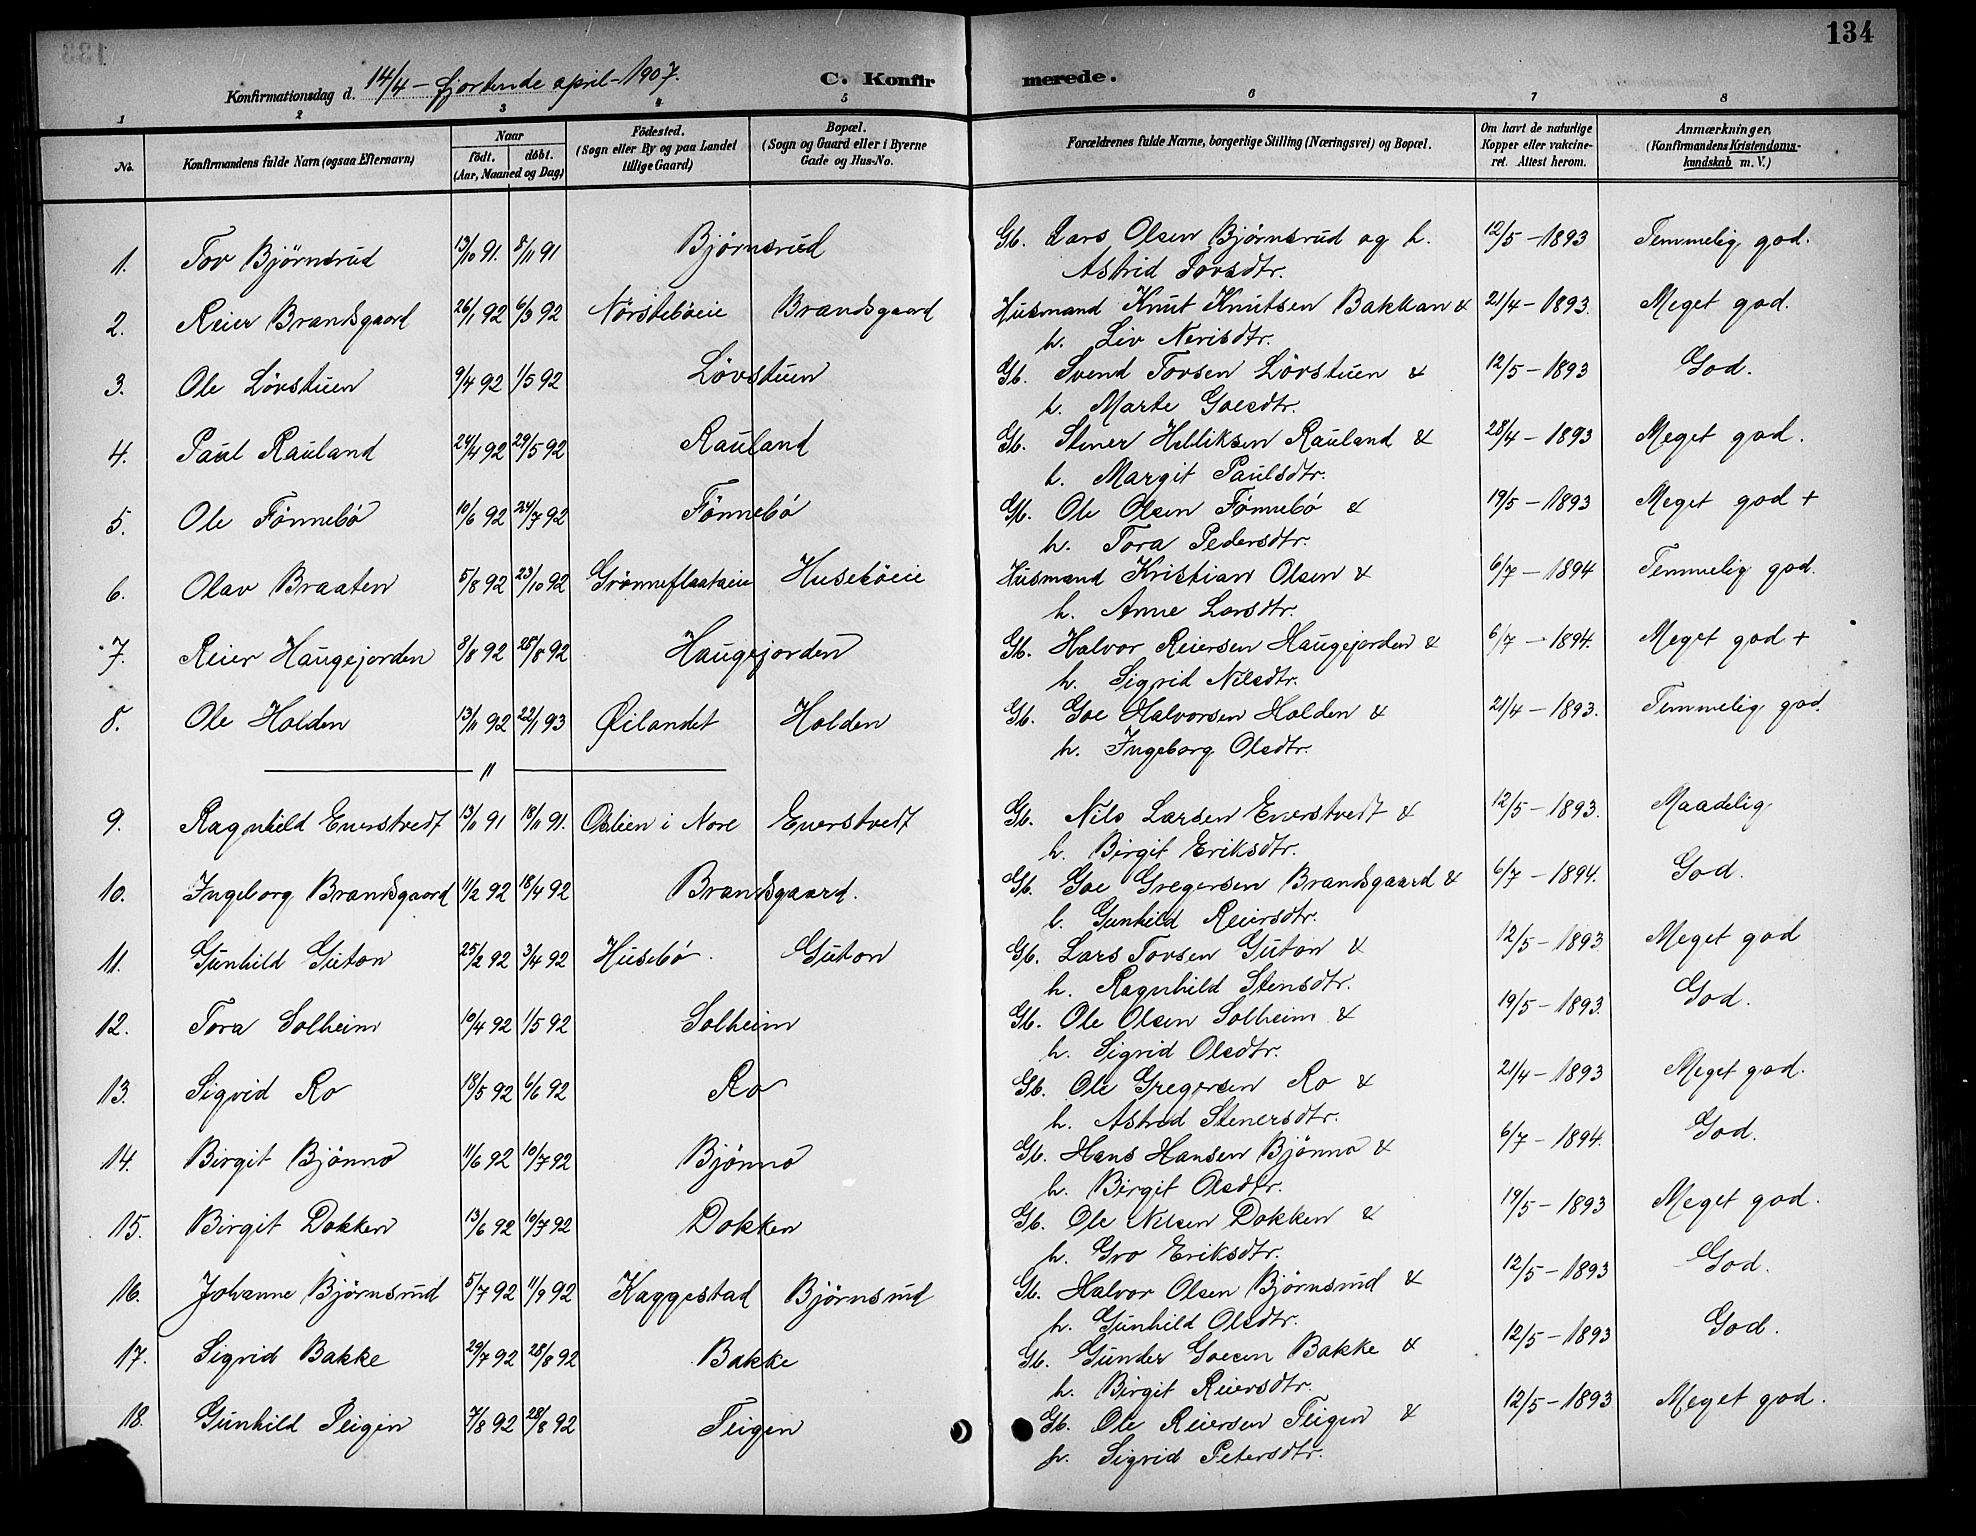 134
Konfirmationsdag d. 14/4 – fjortende april – 1907.
C. Konfirmerede.
1 2 3 4 5 6 7 8
No.
Konfirmandens fulde Navn (ogsaa Efternavn)
Naar
født. døbt.
(Aar, Maaned og Dag)
Födested.
(Sogn eller By og paa Landet
tillige Gaard)
Bopæl.
(Sogn og Gaard eller i Byerne
Gade og Hus-No.
Forældrenes fulde Navne, borgerlige Stilling (Næringsvei) og Bopæl.
Om havt de naturlige
Kopper eller vakcine-
ret. Attest herom.
Anmærkninger,
(Konfirmandens Kristendoms-
kundskab m. V.)
1. Tov Björnsrud 13/10 91. 8/11 91 Björnsrud Gb. Lars Olsen Björnsrud og h. 12/5 – 1893 Temmelig god.
Astrid Tovsdtr.
2. Reier Brandsgaard 26/1 92 6/3 92 Nörsteböeie Brandsgaard Husmand Knut Knutsen Bakkan & 21/4 – 1893. Meget god.
h. Liv Nerisdtr.
3. Ole Lövstuen 9/4 92 1/5 92 Lövstuen Gb. Svend Tovsen Lövstuen & 12/5 – 1893 God.
h. Marte Goesdtr.
4. Paul Rauland 24/4 92 29/5 92 Rauland Gb. Stener Helliksen Rauland & 28/4 – 1893 Meget god.
h. Margit Paulsdtr.
5. Ole Fönnebö 10/6 92 24/7 92 Fönnebö Gb. Ole Olsen Fönnebö & 19/5 – 1893 Meget god +
h. Tora Pedersdtr.
6. Olav Braaten 5/8 92 23/10 92 Grönneflaataeie Huseböeie Husmand Kristian Olsen & 6/7 – 1894 Temmelig god.
h. Anne Larsdtr.
7. Reier Haugejorden 8/8 92 28/8 92 Haugejorden Gb. Halvor Reiersen Haugejorden & 6/7 – 1894. Meget god +
h. Sigrid Nilsdtr.
8. Ole Holden 13/11 92 22/1 93 Øilandet Holden Gb. Goe Halvorsen Holden & 21/4 – 1893. Temmelig god.
h. Ingeborg Olsdtr.
— 11 —
9. Ragnhild Enerstvedt 13/11 91 18/11 91. Oslien i Nore Enerstvedt Gb. Nils Larsen Enerstvedt & 12/5 – 1893. Maadelig
h. Birgit Eriksdtr.
10. Ingeborg Brandsgaard 11/2 92 18/4 92 Brandsgaard. Gb. Goe Gregersen Brandsgaard & 6/7 – 1894. God.
h. Gunhild Reiersdtr.
11. Gunhild Guton 25/2 92 3/4 92 Husebö Guton Gb. Lars Tovsen Guton & 12/5 – 1893 Meget god
h. Ragnhild Stensdtr.
12. Tora Solheim 10/4 92 1/5 92 Solheim Gb. Ole Olsen Solheim & 19/5 – 1893. God.
h. Sigrid Olsdtr.
13. Sigrid Ro 18/5 92 6/6 92 Ro Gb. Ole Gregersen Ro & 21/4 – 1893 Meget god.
h. Astrid Stenersdtr.
14. Birgit Bjönno 11/6 92 10/7 92 Bjönno Gb. Hans Hansen Bjönno & 6/7 – 1894. God.
h. Birgit Olsdtr.
15. Birgit Dokken 13/6 92 10/7 92 Dokken Gb. Ole Nilsen Dokken & 19/5 – 1893 Meget god.
h. Gro Eriksdtr.
16. Johanne Björnsrud 5/7 92 11/9 92 Kaggestad Björnsrud Gb. Halvor Olsen Björnsrud & 12/5 – 1893 God.
h. Gunhild Olsdtr.
17. Sigrid Bakke 29/7 92 28/8 92 Bakke Gb. Gunder Goesen Bakke & 12/5 – 1893 God.
h. Birgit Reiersdtr.
18. Gunhild Teigen 7/8 92 28/8 92 Teigen Gb. Ole Reiersen Teigen & 12/5 – 1893 Meget god.
h. Sigrid Petersdtr.